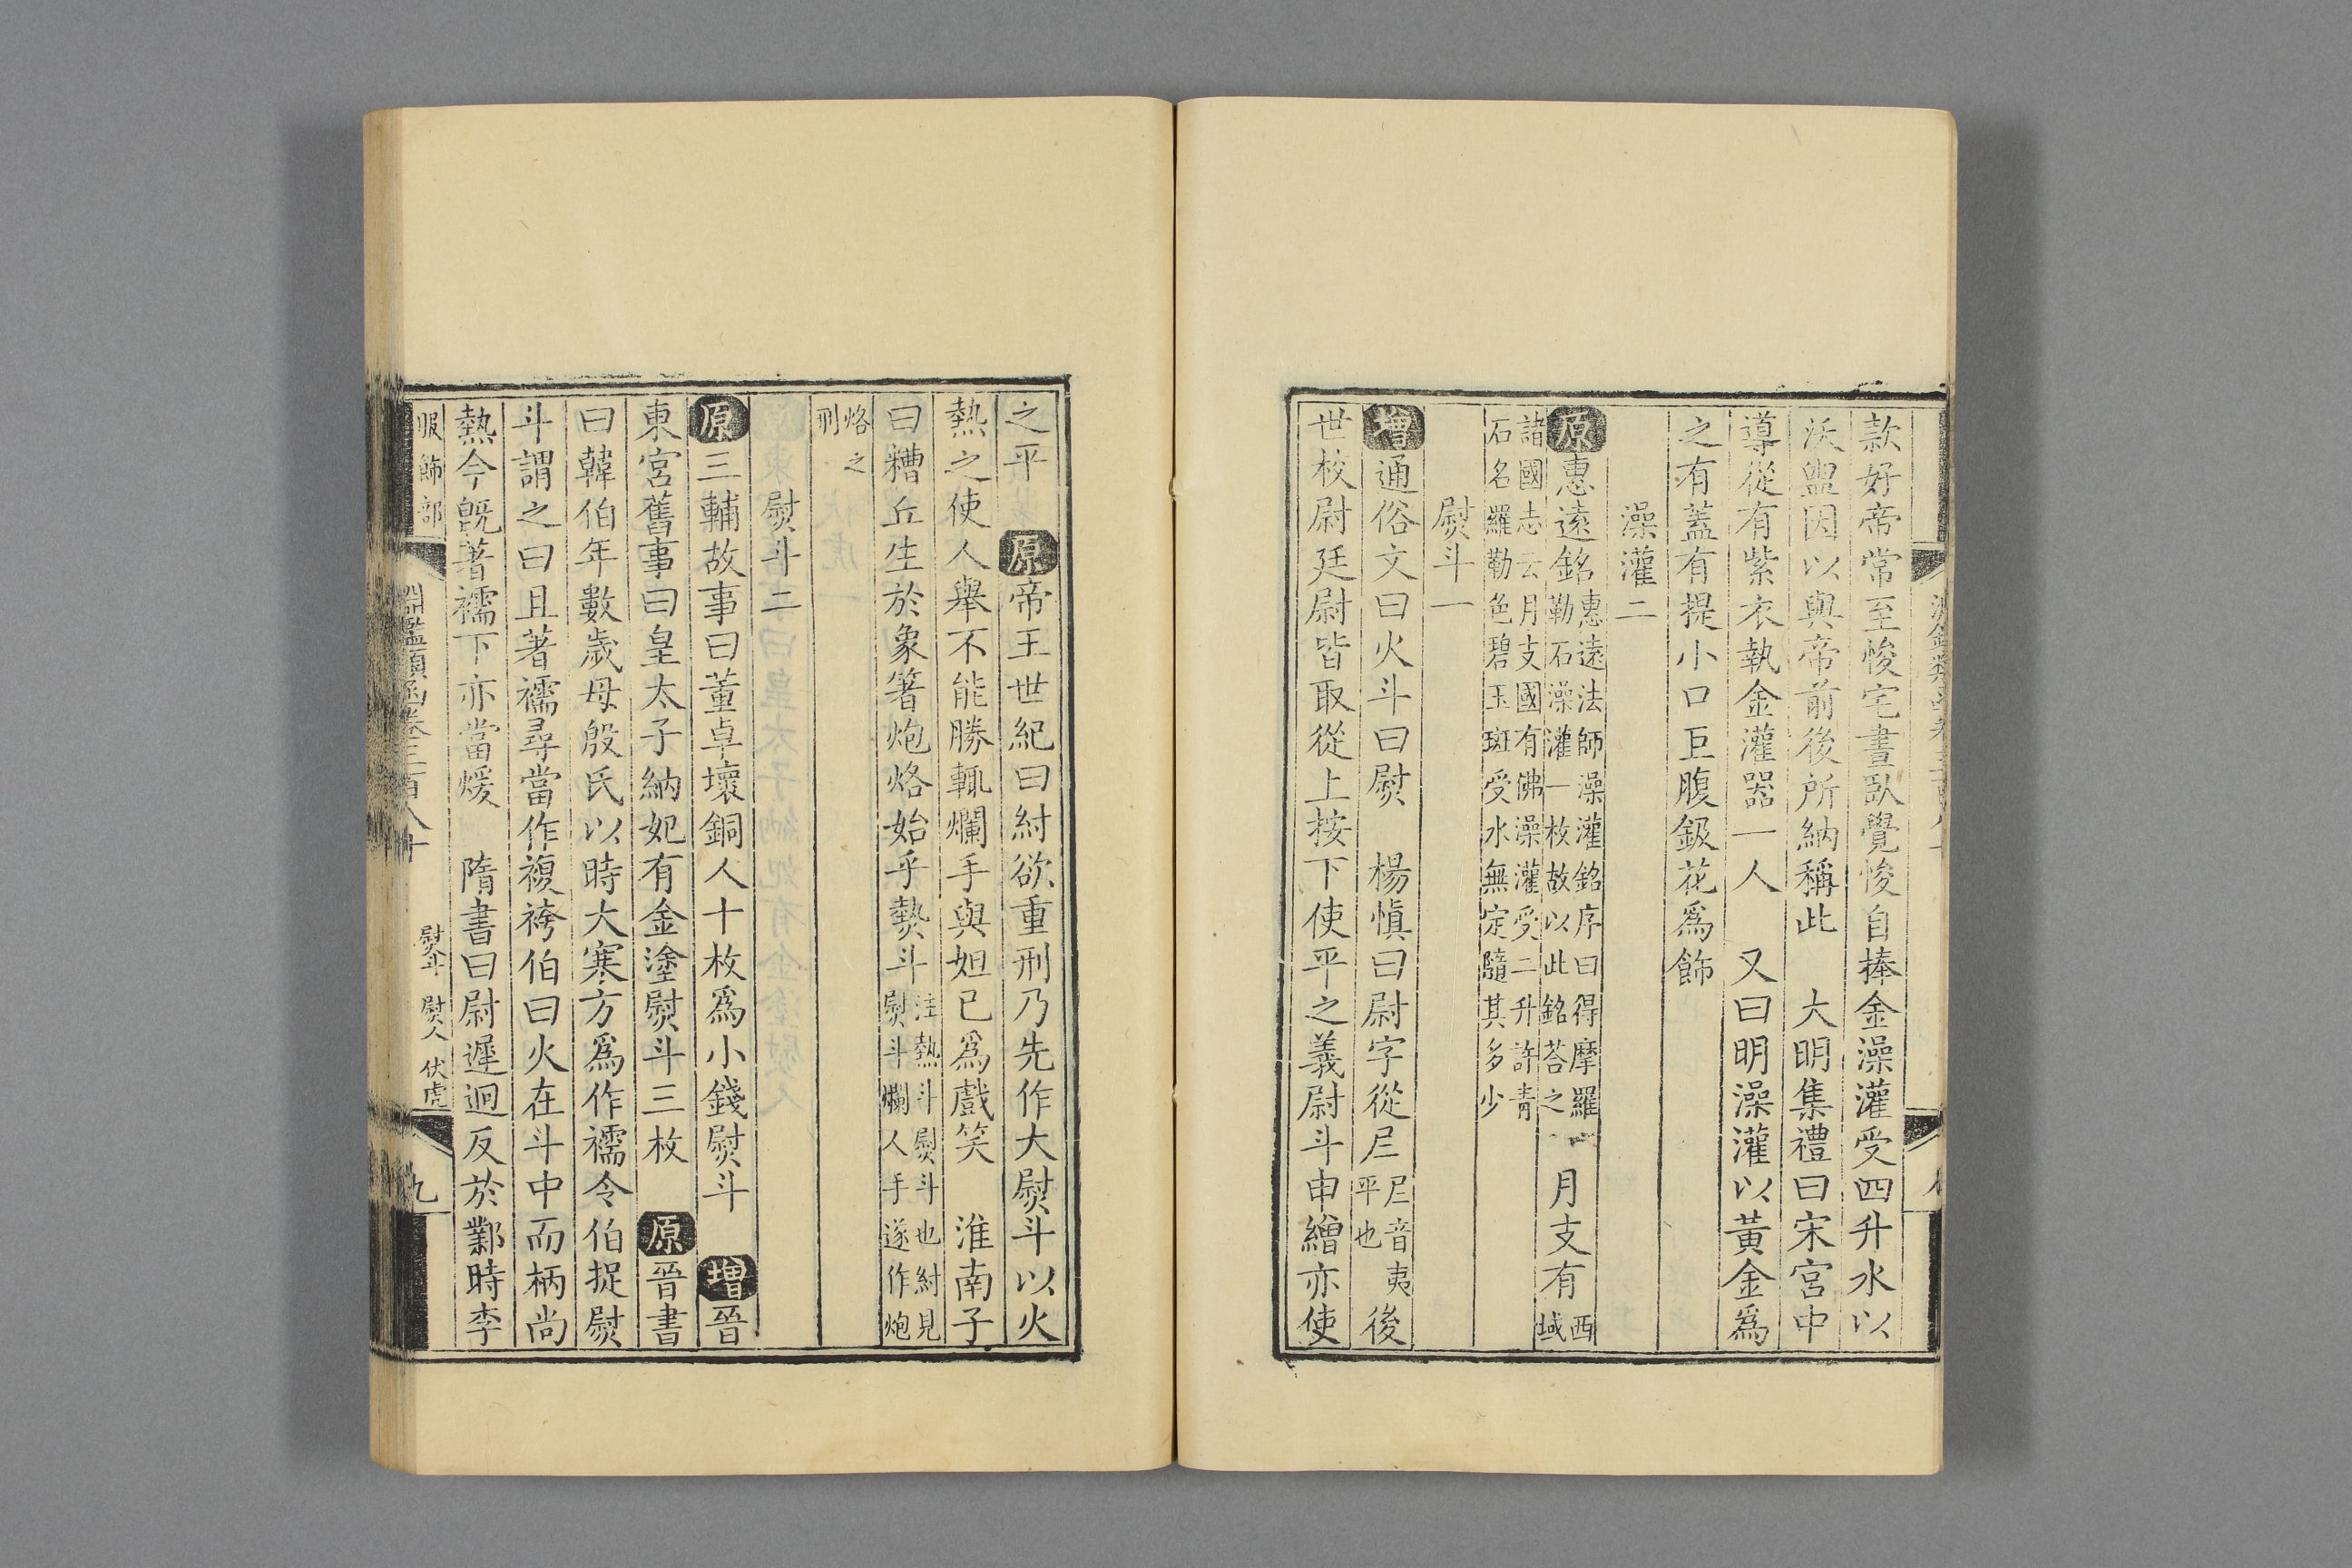 款好帝常至悛宅晝臥覺悛自捧金澡灌受四升水以
沃盥因以與帝前後所納稱此　大明集禮曰宋宮中
導從有紫衣執金灌器一人　又曰明澡灌以黃金爲
之有蓋有提小口巨腹鈒花爲飾
澡灌二
原惠遠銘惠遠法師澡灌銘序曰得摩羅勒石澡灌一枚故以此銘荅之　月支有西域
諸國志云月支國有佛澡灌受二升許青石名羅勒色碧玉斑受水無定隨其多少
熨斗一
增通俗文曰火斗曰熨　楊愼曰尉字從𡰥𡰥音夷平也後
世校尉廷尉皆取從上按下使平之義尉斗申繒亦使
之平　原帝王世紀曰紂欲重刑乃先作大熨斗以火
熱之使人舉不能勝輒爛手與妲己爲戲笑　淮南子
曰糟丘生於象箸炮烙始乎熱斗注熱斗熨斗也紂見熨斗爛人手遂作炮
烙之刑
熨斗二
原三輔故事曰董卓壞銅人十枚爲小錢熨斗　增晉
東宮舊事曰皇太子納妃有金塗熨斗三枚　原晉書
曰韓伯年數歲母殷氏以時大寒方爲作襦令伯捉熨
斗謂之曰且著襦尋當作複袴伯曰火在斗中而柄尚
熱今旣著襦下亦當煖　隋書曰尉遲迥反於鄴時李
服飾部
淵鑑類函卷三百八十
熨斗　熨人　伏虎
九